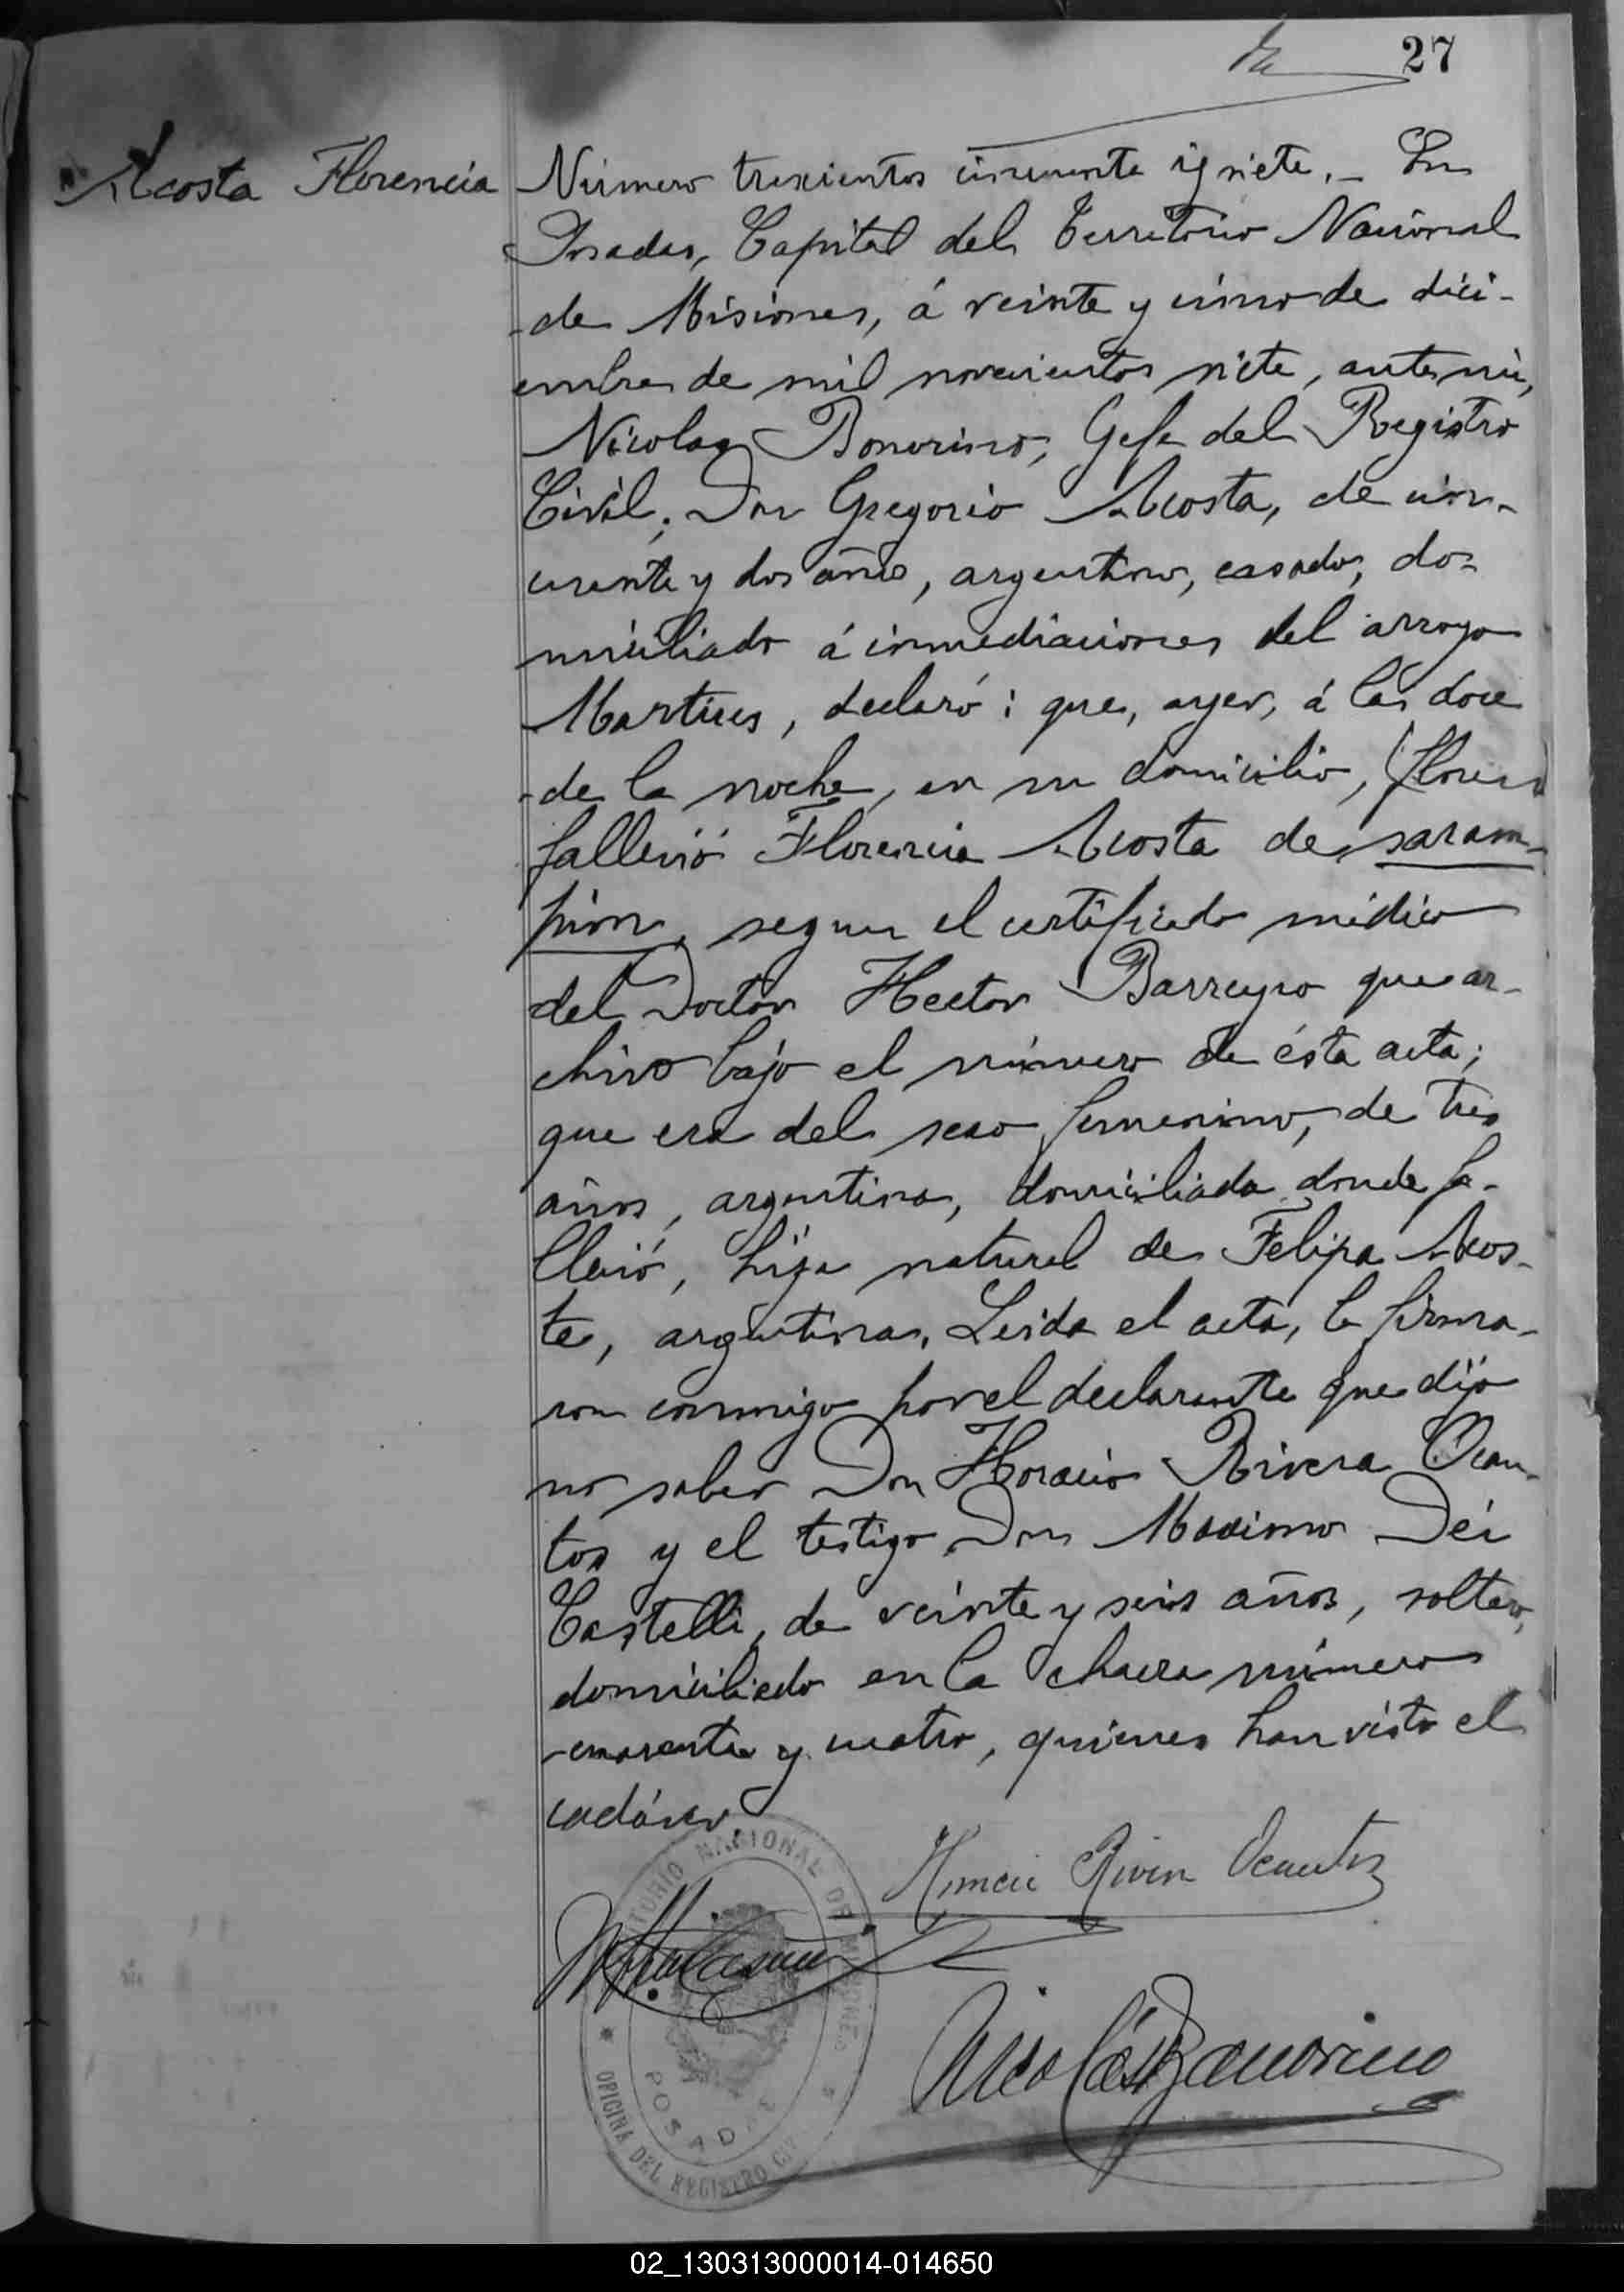 27
Acosta Florencia
Número trescientos cincuenta y siete. – En
Posadas, Capital del Territorio Nacional
de Misiones, á veinte y cinco de dici-
embre de mil novecientos siete, ante mi,
Nicolas Bonorino, Gefe del Registro
Civil; Don Gregorio Acosta, de cin-
cuenta y dos años, argentino, casado, do-
miciliado á inmediaciones del arroyo
Martires, declaró: que, ayer, á las doce
de la noche, en su domicilio,
falleció Florencia Acosta de saram-
pion, segun el certificado médico
del Doctor Hector Barreyro que ar-
chivo bajo el número de ésta acta;
que era del sexo femenino, de tres
años, argentina, domiciliada donde fa-
lleció, hija natural de Felipa Acos-
ta, argentina. Leida el acta, la firma-
ron conmigo por el declarante que dijo
no saber Don Horacio Rivera Ocan-
tos y el testigo Don Maximo Dei
Castelli, de veinte y seis años, soltero,
domiciliado en la chacra número
cuarenta y cuatro, quienes han visto el
cadáver.
Horacio Rivera Ocantos
Nicolás Bonorino
TERRITORIO NACIONAL DE MISIONES
POSADAS
OFICINA DEL REGISTRO CIVIL
02_130313000014-014650